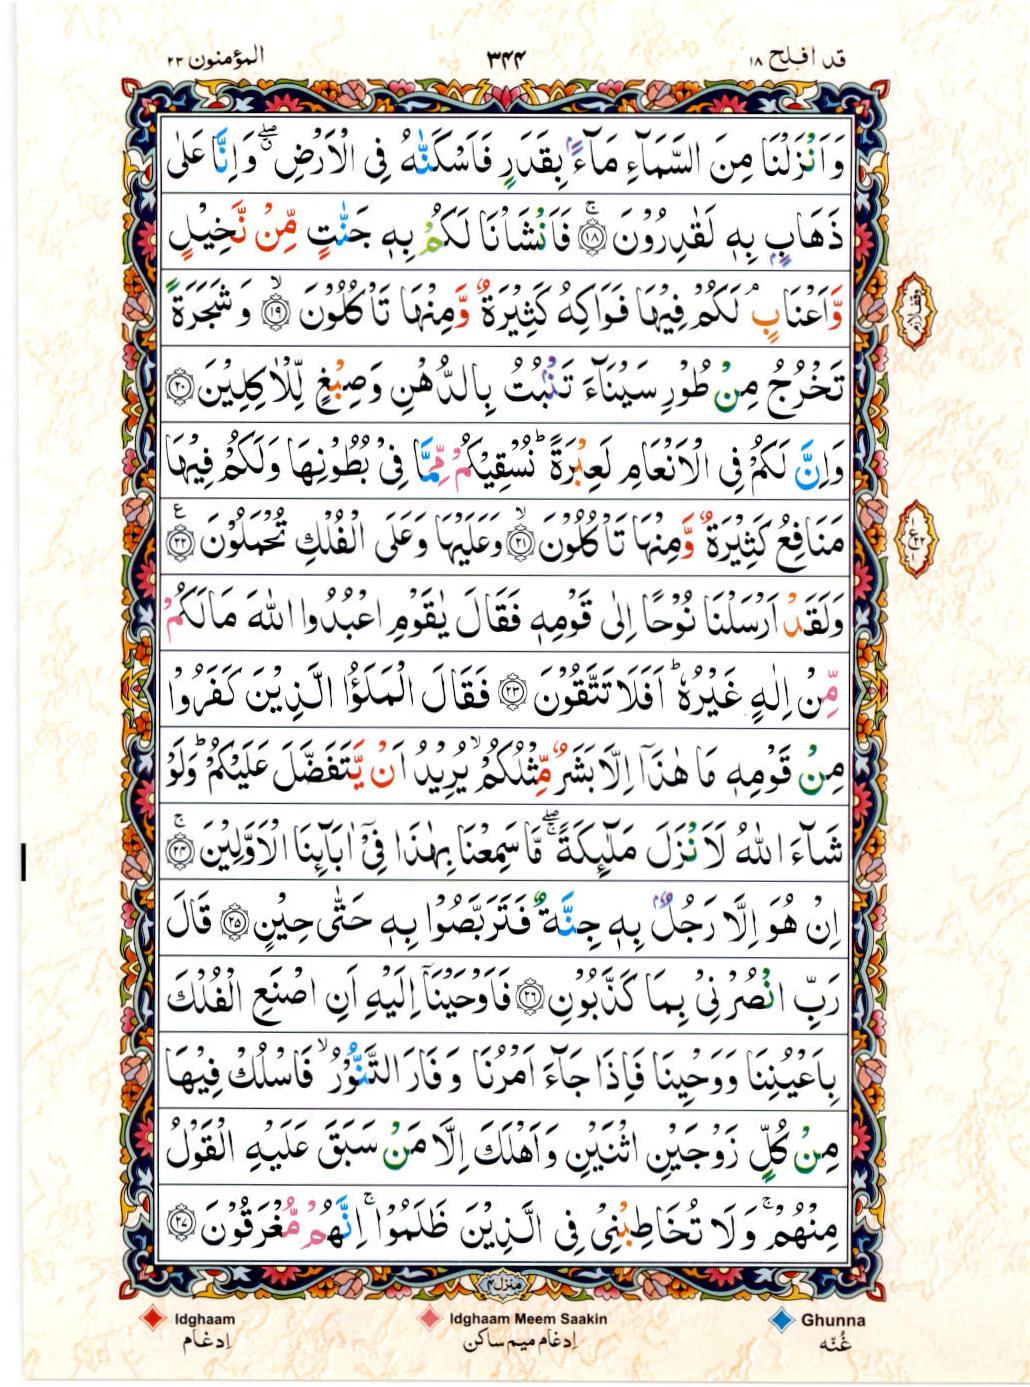 قد افلح ١٨
٣٤٤
المؤمنون ٢٣
وَاَنْزَلْنَا مِنَ السَّمَآءِ مَآءًۢ بِقَدَرٍ فَاَسْكَنّٰهُ فِى الْاَرْضِ ۖۗ وَاِنَّا عَلٰى
ذَهَابٍۢ بِهٖ لَقٰدِرُوْنَ ۚ‏﴿۱۸﴾ فَاَنْشَاْنَا لَكُمْ بِهٖ جَنّٰتٍ مِّنْ نَّخِيْلٍ
وَّاَعْنَابٍ ۘ لَكُمْ فِيْهَا فَوَاكِهُ كَثِيْرَةٌ وَّمِنْهَا تَاْكُلُوْنَ ۙ‏﴿۱۹﴾ وَشَجَرَةً
تَخْرُجُ مِنْ طُوْرِ سَيْنَآءَ تَنْۢبُتُ بِالدُّهْنِ وَصِبْغٍ لِّلْاٰكِلِيْنَ ‏﴿۲۰﴾
وَاِنَّ لَكُمْ فِى الْاَنْعَامِ لَعِبْرَةً ؕ نُسْقِيْكُمْ مِّمَّا فِىْ بُطُوْنِهَا وَلَكُمْ فِيْهَا
مَنَافِعُ كَثِيْرَةٌ وَّمِنْهَا تَاْكُلُوْنَ ۙ‏﴿۲۱﴾ وَعَلَيْهَا وَعَلَى الْفُلْكِ تُحْمَلُوْنَ ‏﴿۲۲﴾ ع
وَلَقَدْ اَرْسَلْنَا نُوْحًا اِلٰى قَوْمِهٖ فَقَالَ يٰقَوْمِ اعْبُدُوا اللّٰهَ مَا لَكُمْ
مِّنْ اِلٰهٍ غَيْرُهٗ ؕ اَفَلَا تَتَّقُوْنَ ‏﴿۲۳﴾ فَقَالَ الْمَلَؤُا الَّذِيْنَ كَفَرُوْا
مِنْ قَوْمِهٖ مَا هٰذَاۤ اِلَّا بَشَرٌ مِّثْلُكُمْ ۙ يُرِيْدُ اَنْ يَّتَفَضَّلَ عَلَيْكُمْ ؕ وَلَوْ
شَآءَ اللّٰهُ لَاَنْزَلَ مَلٰٓئِكَةً ۖۚ مَّا سَمِعْنَا بِهٰذَا فِىْۤ اٰبَآئِنَا الْاَوَّلِيْنَ ۚ‏﴿۲۴﴾
اِنْ هُوَ اِلَّا رَجُلٌۢ بِهٖ جِنَّةٌ فَتَرَبَّصُوْا بِهٖ حَتّٰى حِيْنٍ ‏﴿۲۵﴾ قَالَ
رَبِّ انْصُرْنِىْ بِمَا كَذَّبُوْنِ ‏﴿۲۶﴾ فَاَوْحَيْنَاۤ اِلَيْهِ اَنِ اصْنَعِ الْفُلْكَ
بِاَعْيُنِنَا وَوَحْيِنَا فَاِذَا جَآءَ اَمْرُنَا وَفَارَ التَّنُّوْرُ ۙ فَاسْلُكْ فِيْهَا
مِنْ كُلٍّ زَوْجَيْنِ اثْنَيْنِ وَاَهْلَكَ اِلَّا مَنْ سَبَقَ عَلَيْهِ الْقَوْلُ
مِنْهُمْ ۚ وَلَا تُخَاطِبْنِىْ فِى الَّذِيْنَ ظَلَمُوْا ۚ اِنَّهُمْ مُّغْرَقُوْنَ ‏﴿۲۷﴾
وقف لازم
منزل ۴
Idghaam
اِدغام
Idghaam Meem Saakin
اِدغام میم ساکن
Ghunna
غُنّه